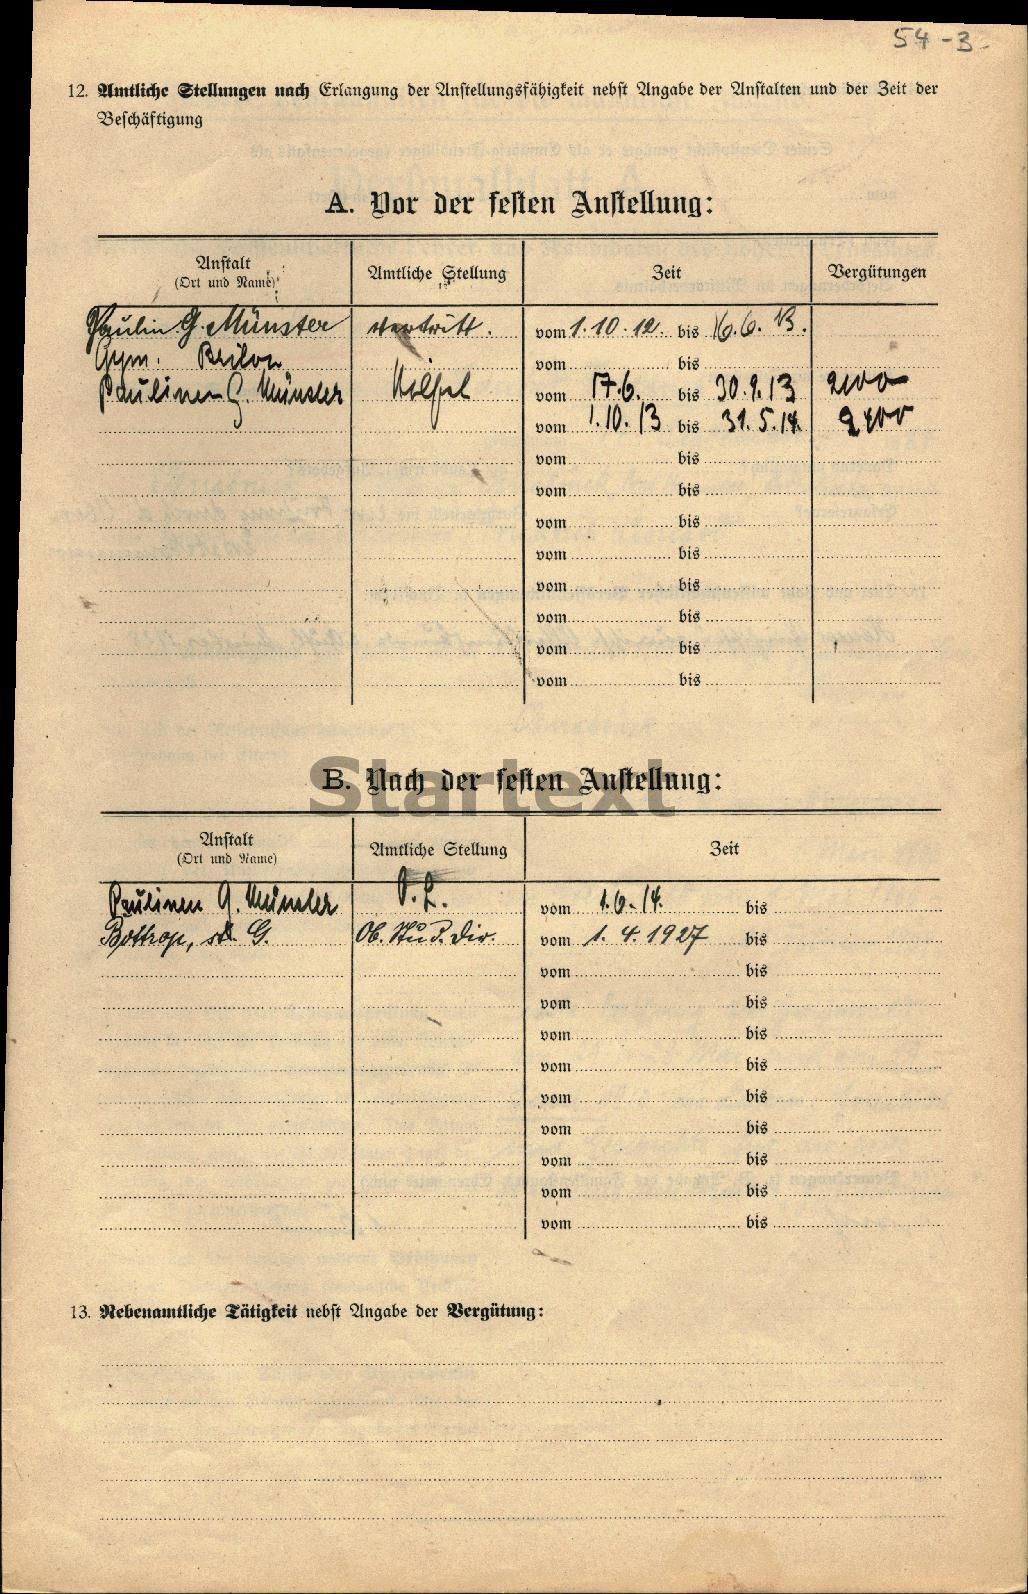 54-3-
12. Amtliche Stellungen nach Erlangung der Anstellungsfähigkeit nebst Angabe der Anstalten und der Zeit der
Beschäftigung
A. Vor der festen Anstellung:
Anstalt Amtliche Stellung Zeit Vergütungen
(Ort und Name)
Paulin G. Münster vertritt. vom 1.10.12. bis 16.6.13.
Gym. Brilon vom bis
Paulinen G. Münster vom 17.6. bis 30.9.13 2100
vom 1.10.13 bis 31.5.14. 2400
vom bis
vom bis
vom bis
vom bis
vom bis
vom bis
vom bis
vom bis
Startext
B. Nach der festen Anstellung:
Anstalt Amtliche Stellung Zeit
(Ort und Name)
Paulinen G. Münster O.L. vom 1.6.14. bis
Bottrop, G. Ob. Stud. Dir. vom 1.4.1927 bis
vom bis
vom bis
vom bis
vom bis
vom bis
vom bis
vom bis
vom bis
vom bis
13. Nebenamtliche Tätigkeit nebst Angabe der Vergütung: